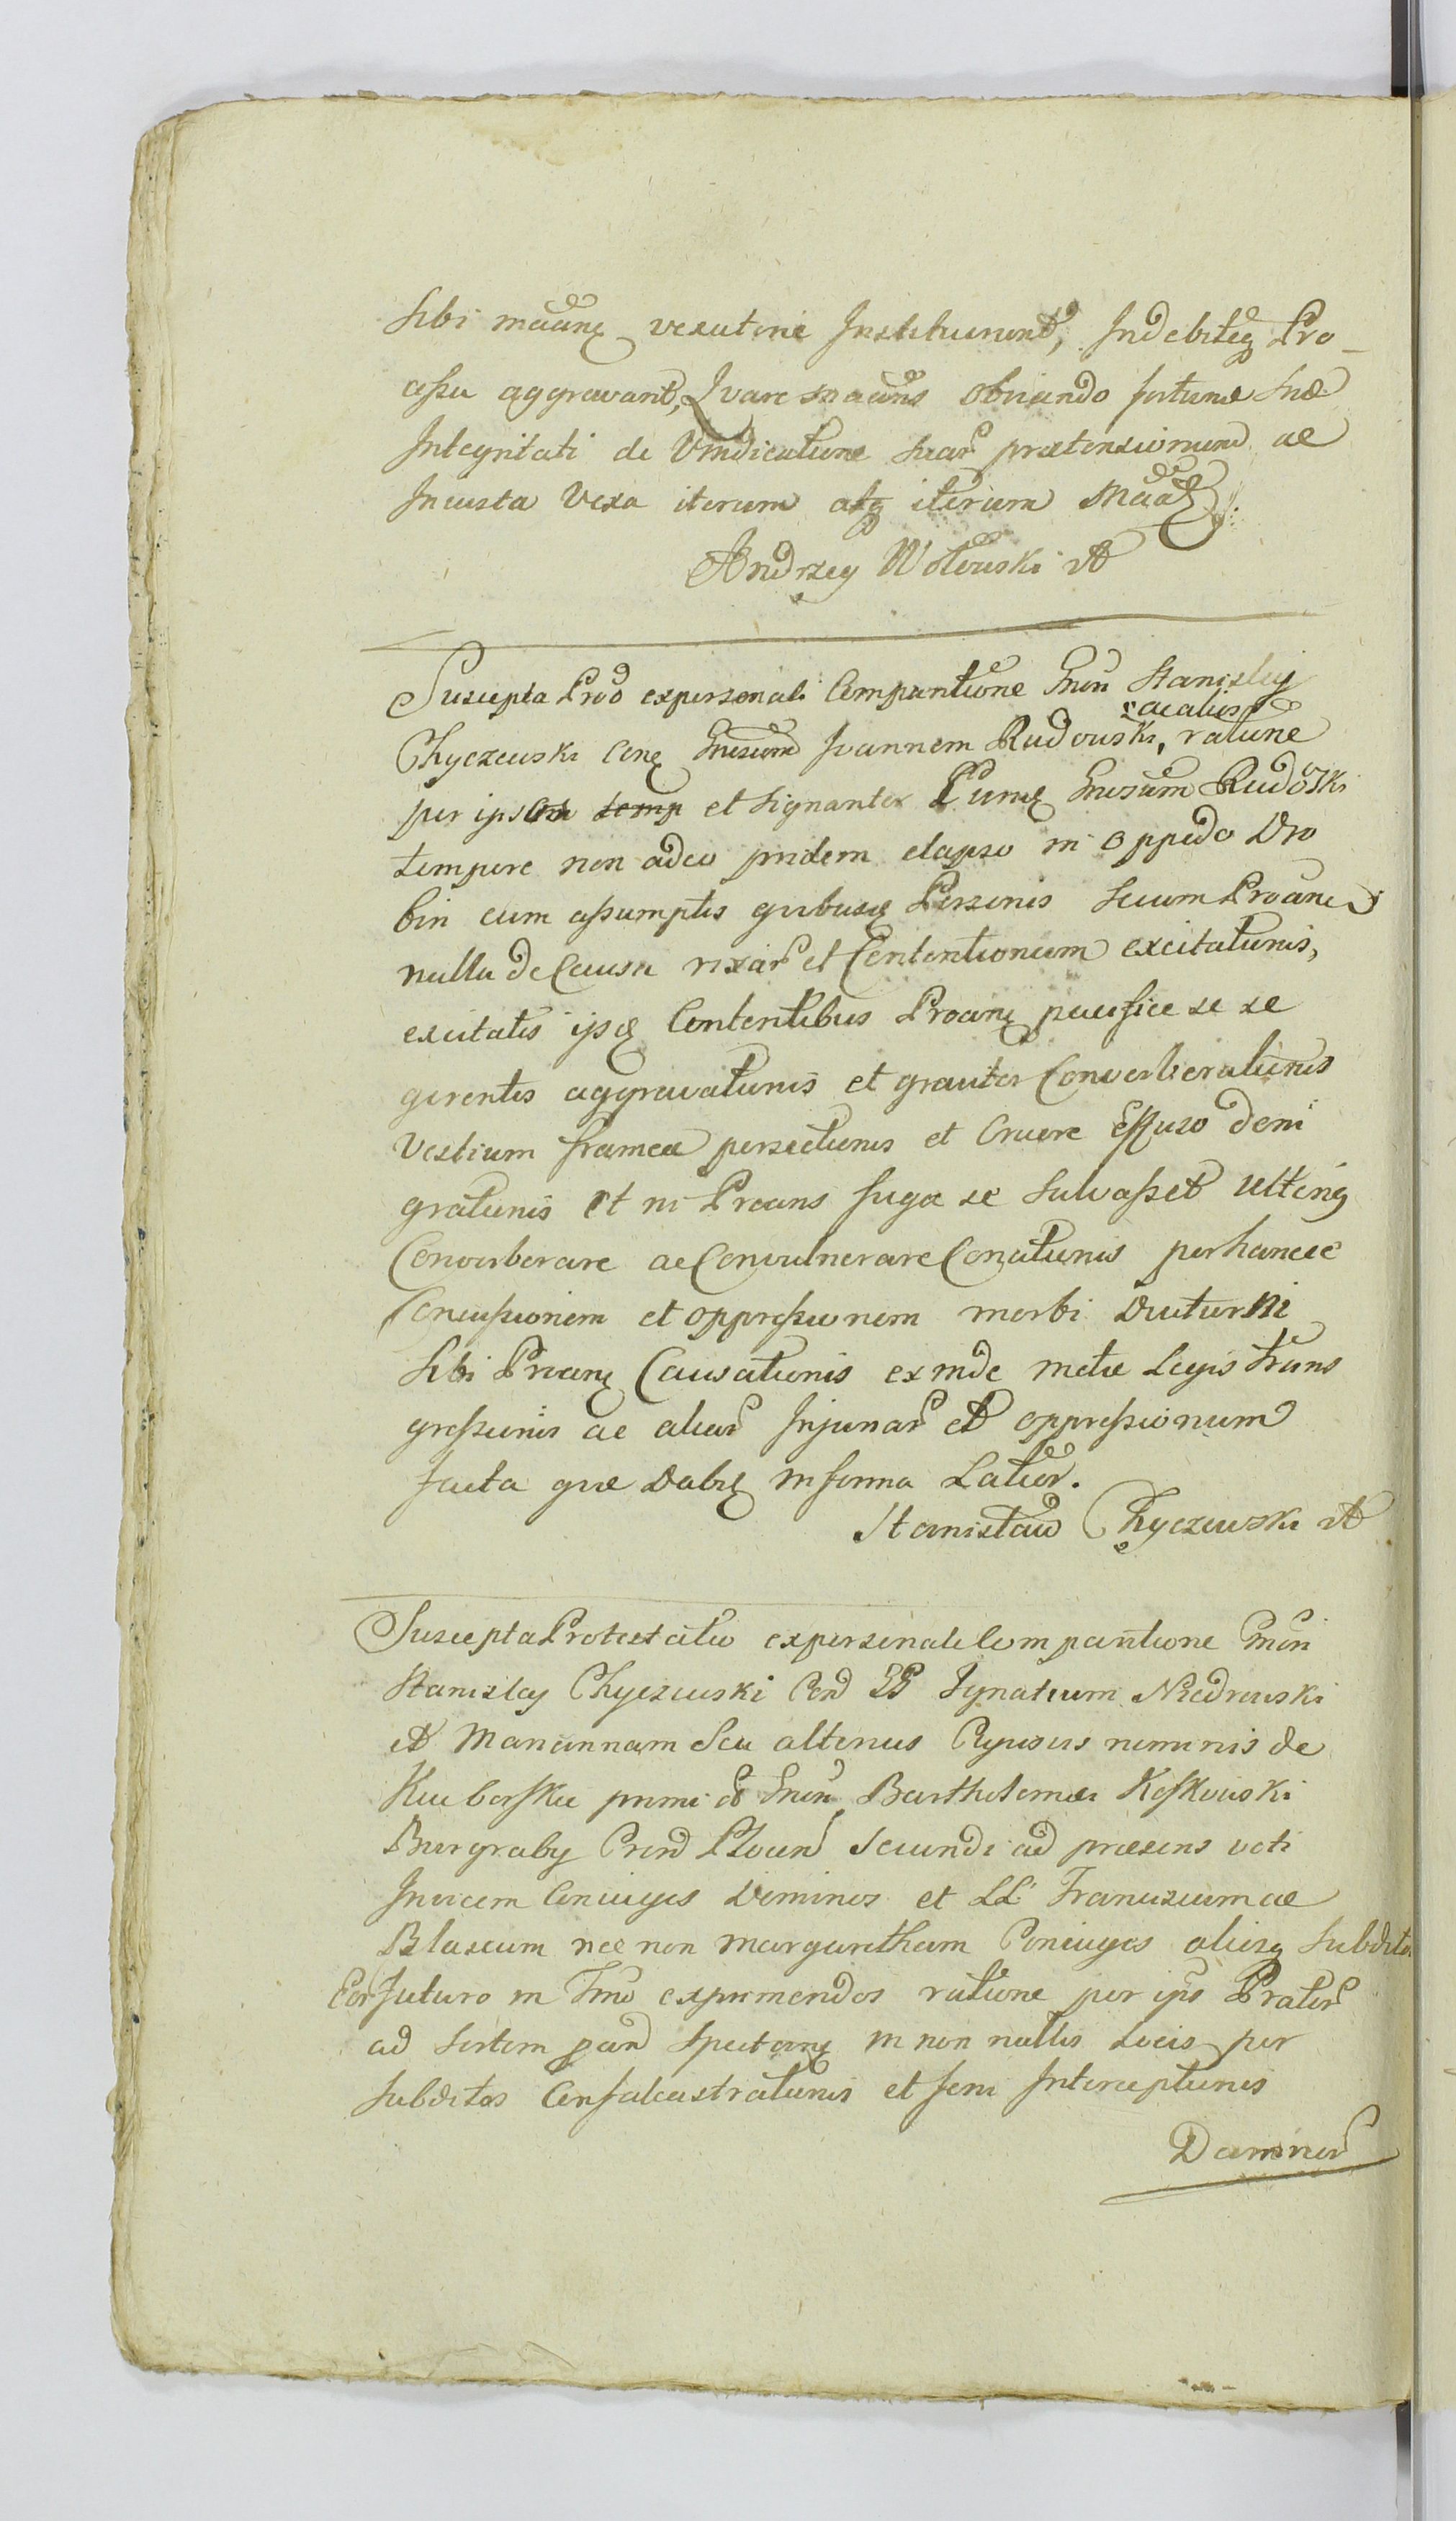 sibi maãnt vexatorie Instituerunt, Indebiteq Pro_
cessu aggravant, Quare maãns obviando fortunæ suæ
Integritati de Vindicatione suar prætensionum ac
Iniusta Vexa iterum atq iterum
Andrzey Wołowski
Suscepta Prõ ex personali Comparitione Gnosi Stanislaj
et alios
Chyczewski Cont Gnosum Joannem Rudowski, ratione
per ipsum temp et signanter Pnum Gnosum Rudowski
tempore non adeo pridem elapso in oppido Dro
bin cum assumptis quibusq Personis secum Proante
nulla de Causa rixar et Contentionum excitationis,
excitatis ijsq Contentibus Proant pacifice se se
gerentis aggravationis et graviter Converberationis
Vestium framea persectionis et Cruore Effuso deni
grationis et ni Proans fuga se salvasset ulterius
Converberare ac Convulnerare Conationis per hancce
Concussionem et oppressionem morbi Diuturni
sibi Proant Causationis exinde metæ Legis trans
gressionis ac aliar Injuriar et oppressionum
facta quæ Dabit in forma Latior.
Stanisław Chyczewski
Suscepta Protestatio ex personali Comparitione Gnosi
Stanislaj Chyczewski Con Ignatium Niedrowski
et Mariannam seu alterius Cujusvis nominis de
primi et Gnosi Bartholomei Koskowski
Burgraby Cren Plocen secundi ad præsens voti
Invicem Coniuges Dominos et LL Franciscum ac
Blasium nec non Margaretham Coniuges aliosq subditos
Eor futuro in Tmo exprimendos ratione per ips Prator
ad sortem spectant in non nullis Locis per
subditos Confalcastrationis et feni Interceptionis
Damnor